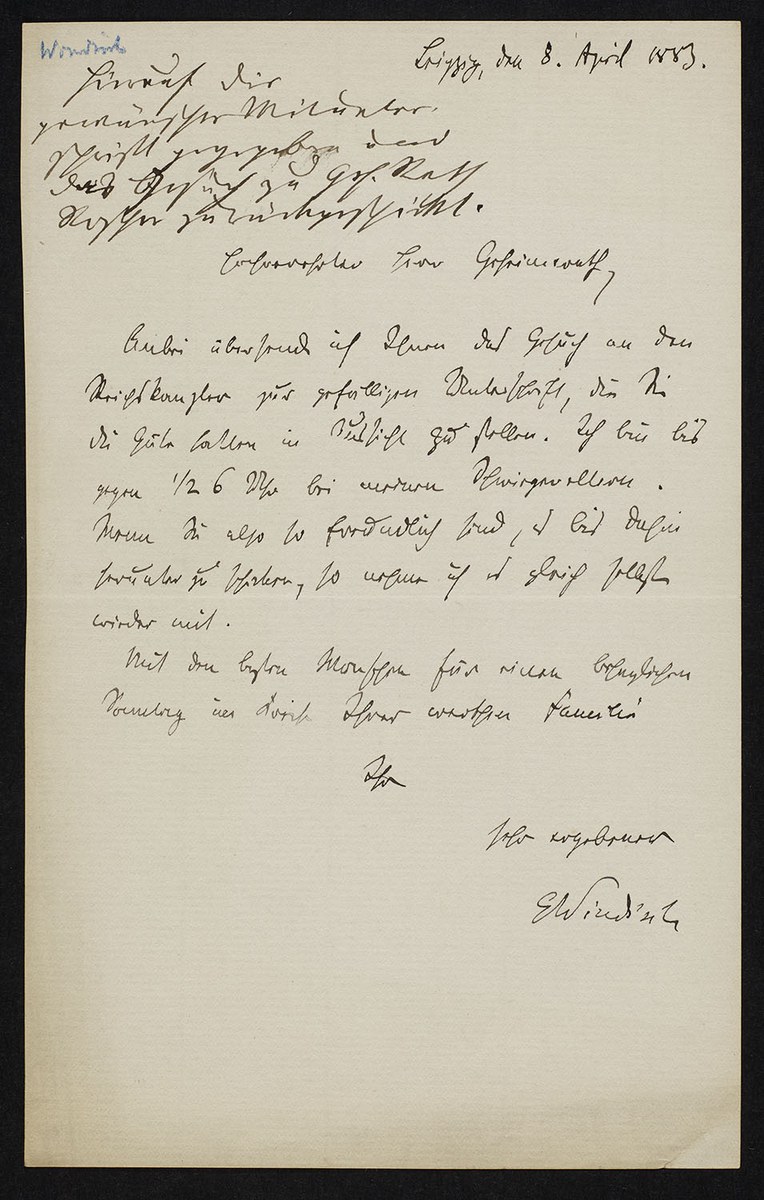 Windisch
Leipzig, den 8. April 1883.
Hierauf die
gewünschte Mitunter-
schrift gegegeben und
das Gesuch zu Geh. Rath
Roscher zurückgeschickt.
Hochverehrter Herr Geheimrath,
Anbei übersende ich Ihnen das Gesuch an den
Reichskanzler zur gefälligen Unterschrift, die Sie
die Güte hatten in Aussicht zu stellen. Ich bin bis
gegen 1/2 6 Uhr bei meinen Schwiegereltern.
Wenn Sie also so freundlich sind, es bis dahin
herunter zu schicken, so nehme ich es gleich selbst
wieder mit.
Mit den besten Wünschen für einen behaglichen
Sonntag im Kreise Ihrer werthen Familie
Ihr
sehr ergebener
EWindisch